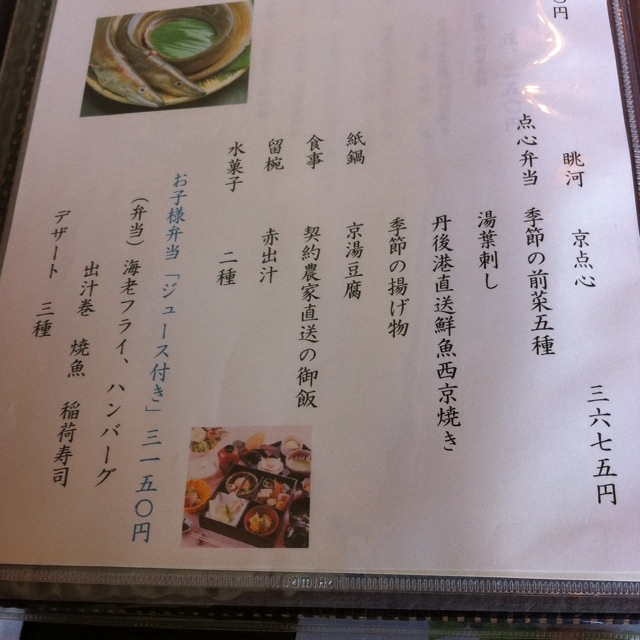 〇円
眺河 京点心 三六七五円
点心弁当 季節の前菜五種
湯葉刺し
丹後港直送鮮魚西京焼き
季節の揚げ物
紙鍋 京湯豆腐
食事 契約農家直送の御飯
留椀 赤出汁
水菓子 二種
お子様弁当「ジュース付き」三一五〇円
（弁当）海老フライ、ハンバーグ
出汁巻 焼魚 稲荷寿司
デザート 三種